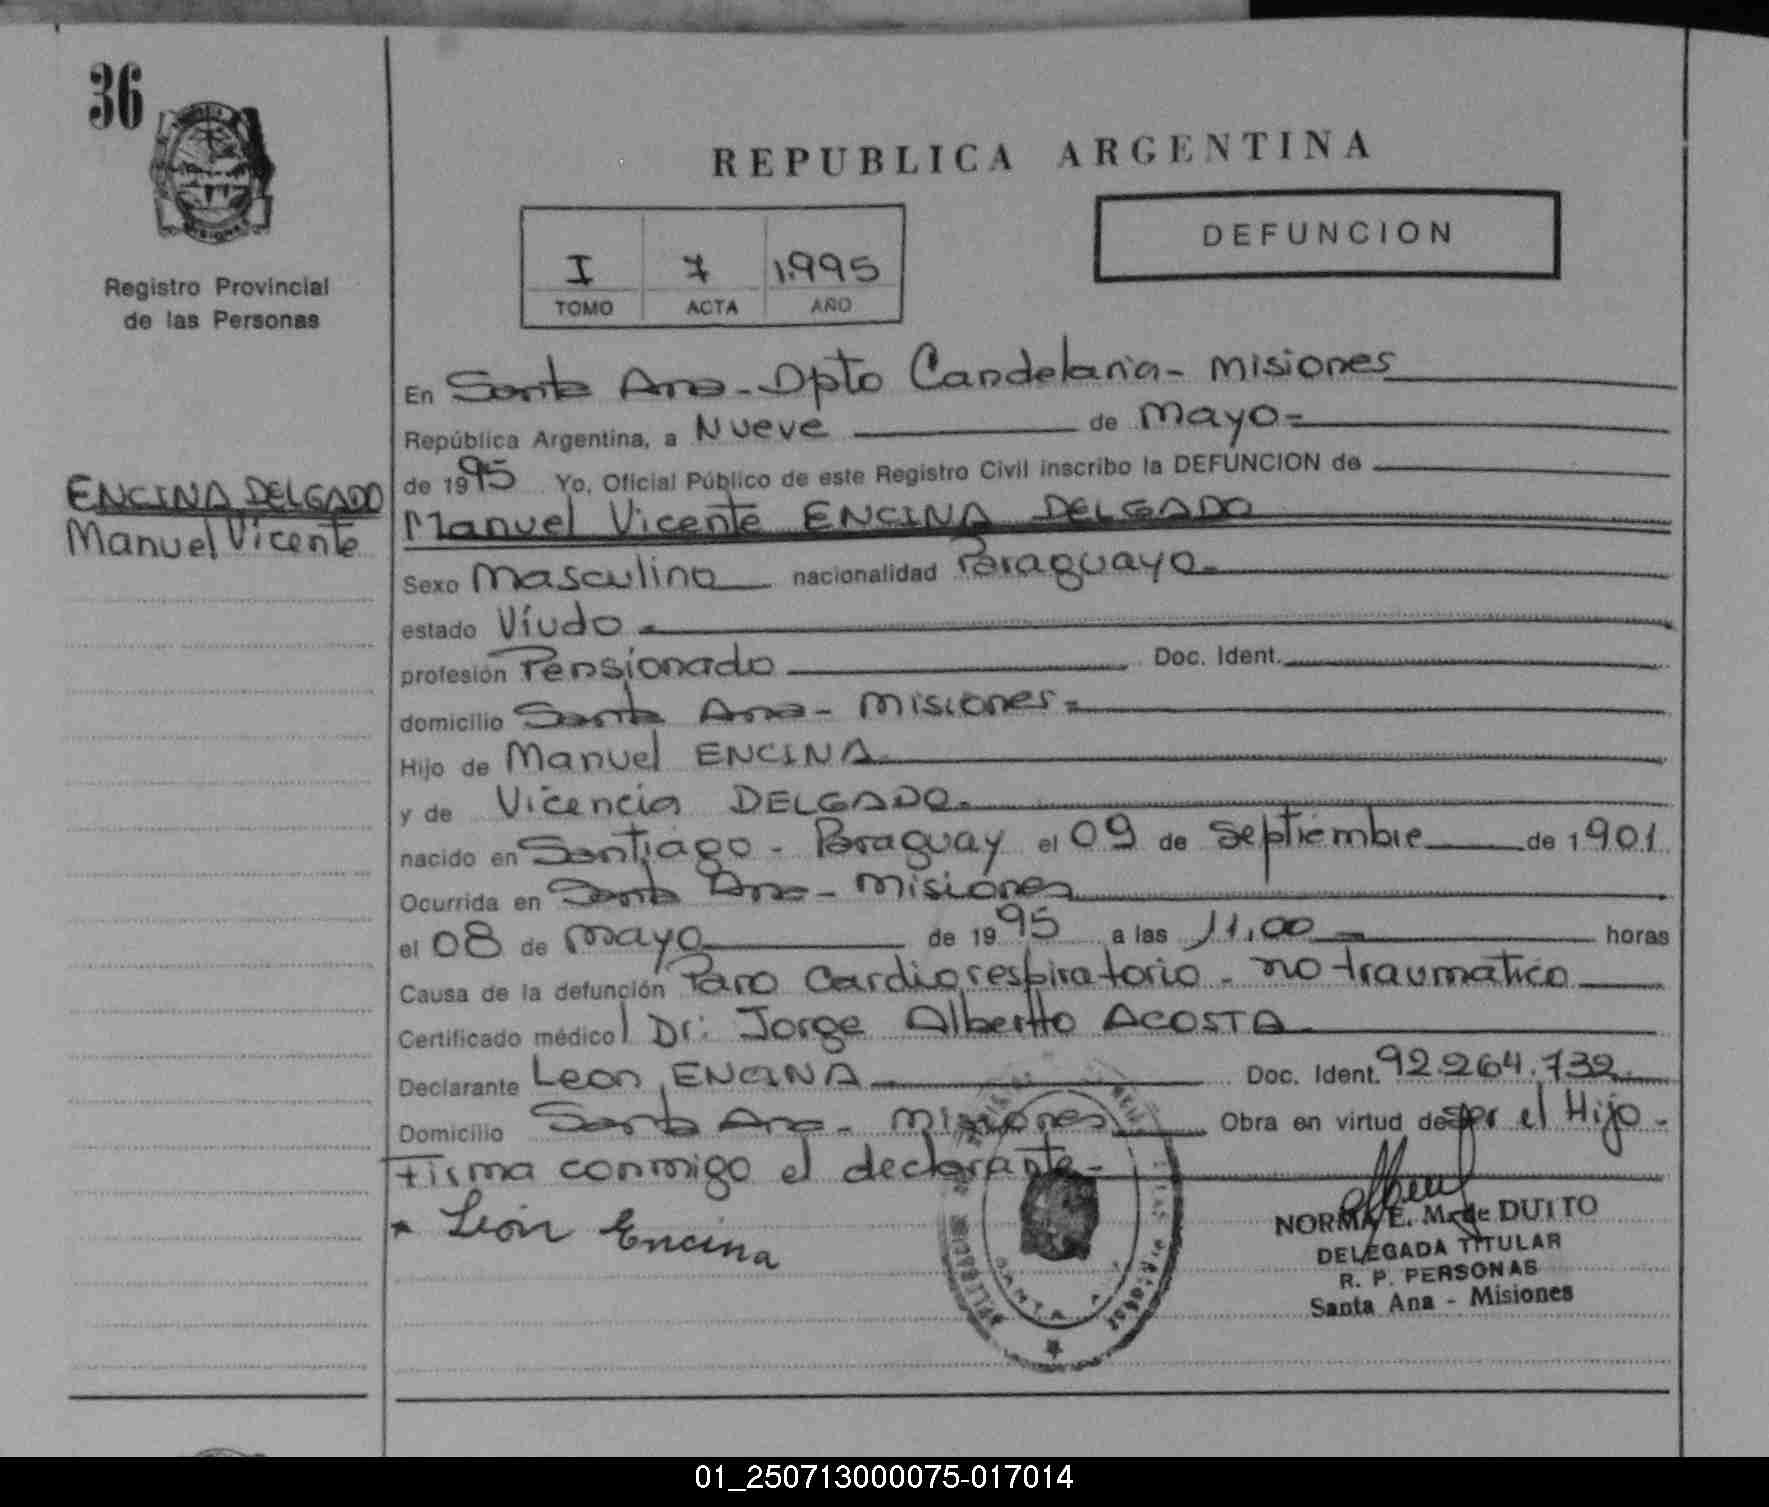 36
Registro Provincial
de las Personas
ENCINA DELGADO
Manuel Vicente
REPUBLICA ARGENTINA
DEFUNCION
I 7 1.995
TOMO ACTA AÑO
En Santa Ana - Dpto Candelaria - Misiones
República Argentina, a Nueve de Mayo =
de 1995 Yo, Oficial Público de este Registro Civil inscribo la DEFUNCION de
Manuel Vicente ENCINA DELGADO
Sexo Masculino nacionalidad Paraguayo.
estado Viudo.
profesión Pensionado Doc. Ident.
domicilio Santa Ana - Misiones =
Hijo de Manuel ENCINA
y de Vicencia DELGADO.
nacido en Santiago - Paraguay el 09 de Septiembre de 1901
Ocurrida en Santa Ana - Misiones
el 08 de Mayo de 1995 a las 11,00 horas
Causa de la defunción Paro Cardiorespiratorio - no traumatico
Certificado médico Dr: Jorge Albertto ACOSTA
Declarante Leon ENCINA Doc. Ident. 92.264.732
Domicilio Santa Ana - Misiones Obra en virtud de ser el Hijo -
Firma conmigo el declarante -
León Encina
NORMA E. M. de DUTTO
DELEGADA TITULAR
R. P. PERSONAS
Santa Ana - Misiones
01_250713000075-017014